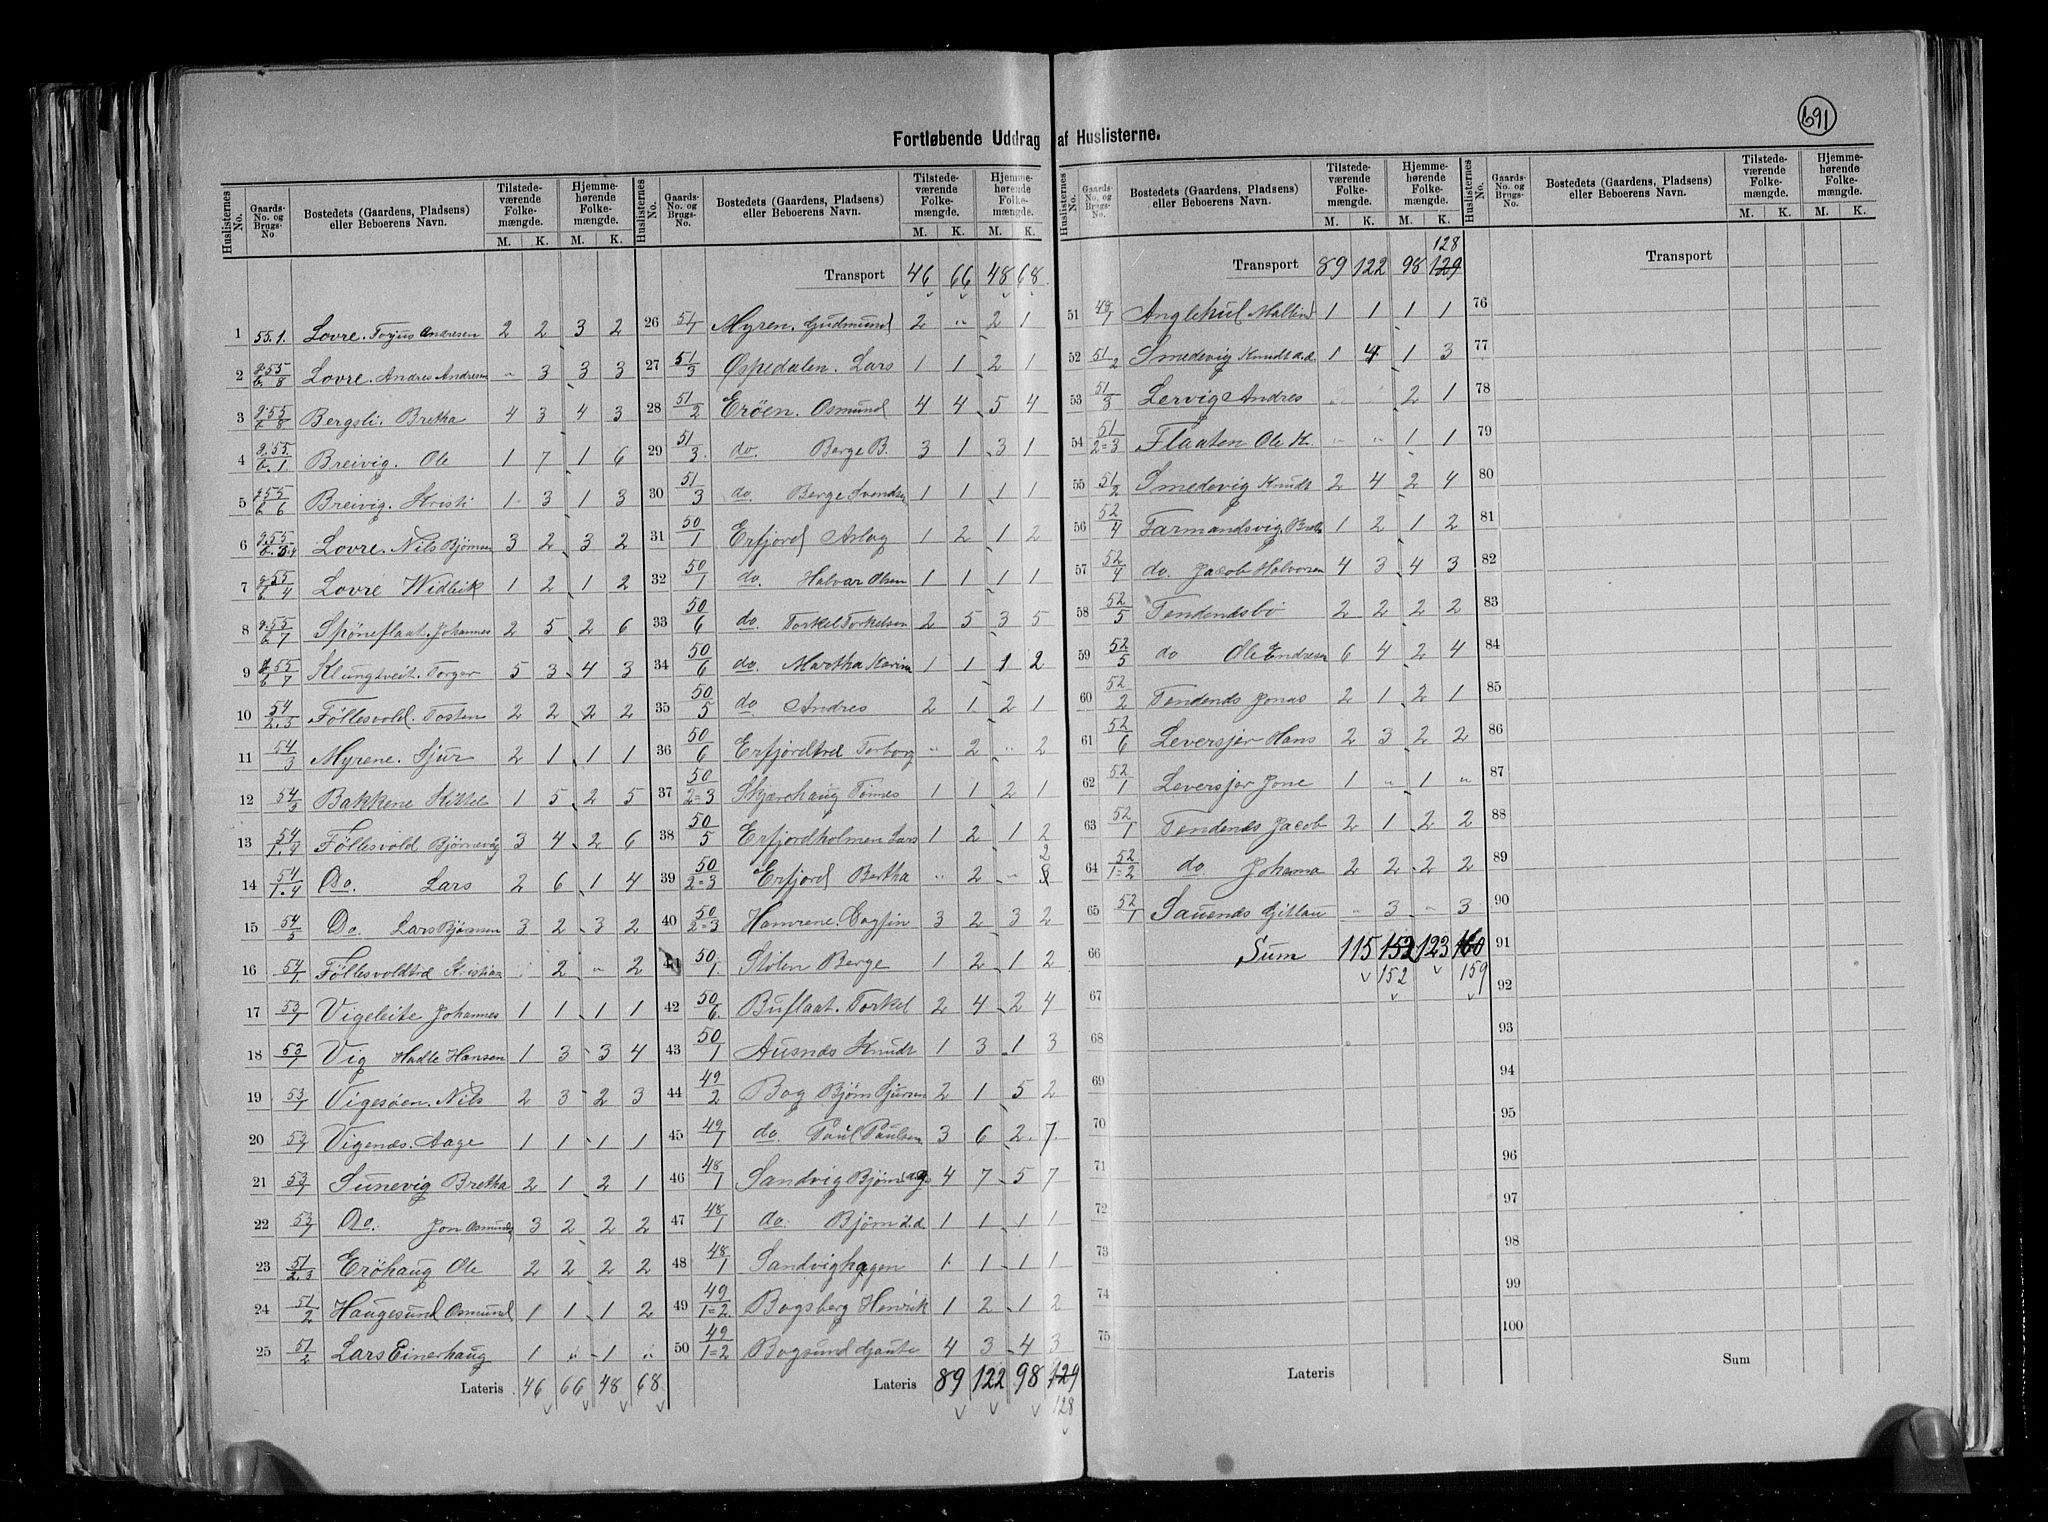 691
Fortløbende Uddrag af Huslisterne.
Huslisternes No. | Gaards-No. og Brugs-No. | Bostedets (Gaardens, Pladsens) eller Beboerens Navn. | Tilstedeværende Folkemængde. M. K. | Hjemmehørende Folkemængde. M. K.
1 55.1. Lovre. Torjus Andresen 2 2 3 2
2 55/8 Lovre. Andres Andresen " 3 3 3
3 55/8 Bergsli. Bretha 4 3 4 3
4 55/1 Breivig. Ole 1 7 1 6
5 55/6 Breivig. Kristi 1 3 1 3
6 55 Lovre. Nils Bjørnsen 3 2 3 2
7 55/4 Lovre Widbik 1 2 1 2
8 55/7 Spöneflaat. Johannes 2 5 2 6
9 55/7 Klungtveit. Torger 5 3 4 3
10 54/2.3 Föllesvold. Tosten 2 2 2 2
11 54/3 Myrene. Sjur 2 1 1 1
12 54/3 Bakkene Kittel 1 5 2 5
13 54/1.4 Föllesvold Bjørnevig 3 4 2 6
14 54/1.4 Do. Lars 2 6 1 4
15 54/5 Do. Lars Bjørnsen 3 2 3 2
16 54/1. Föllesvoldtræ Kristian 2 " 2
17 53/1 Vigeleite Johannes 1 1 1 1
18 53/1 Vig Hadle Hansen 1 3 3 4
19 53/1 Vigesøen. Nils 2 3 2 3
20 53/1 Vigenæs. Aage 1 1 1 1
21 53/1 Sunevig Bretha 2 1 2 1
22 53/1 Do. Jon Osmunds 3 2 2 2
23 51/2.3 Eröhaug Ole 2 2 2 2
24 51/2 Haugesund Osmund 1 1 1 2
25 51/2 Lars Einerhaug 1 " 1 "
Lateris 46 66 48 68
Transport 46 66 48 68
26 51/1 Myren. Gudmund 2 " 2 1
27 51/3 Ospedalen. Lars 1 1 2 1
28 51/2 Eröen. Osmund 4 4 5 4
29 51/3. do. Berge B. 3 1 3 1
30 51/3 do. Berge Svendsen 1 1 1 1
31 50/1 Erfjord Aslag 1 2 1 2
32 50/1 do. Halvar Olsen 1 1 1 1
33 50/6 do. Torkel Torkelsen 2 5 3 5
34 50/6 do. Martha Karine 1 1 1 2
35 50/5 do Andres 2 1 2 1
36 50/6 Erfjordtræ Torborg " 2 " 2
37 50/2=3 Skjærehaug Tönnes 1 1 2 1
38 50/5 Erfjordholmen Lars 1 2 1 2
39 50/2=3 Erfjord Bertha " 2 " 3 2
40 50/2=3 Hamrene. Dagfin 3 2 3 2
41 50/1. Stölen Berge 1 2 1 2
42 50/6. Buflaat. Torkel 2 4 2 4
43 50/1 Ausnæs Knudt 1 3 1 3
44 49/2 Bog Bjørn Sjursen 2 1 5 2
45 49/1 do. Paul Paulsen 3 6 2 7
46 48/1 Sandvig Bjørn 4 7 5 7
47 48/1 do. Bjørn d.d. 1 1 1 1
48 48/1 Sandvighagen 1 1 1 1
49 49/1=2. Bogsberg Henrik 1 2 1 2
50 49/1=2 Bogsund Gaute 4 3 4 3
Lateris 89 122 98 129
128
128
Transport 89 122 98 129
51 49/1 Anglehul 1 1 1 1
52 51/2 Smedevig Knudt a.d. 1 4 1 3
53 51/3 Lervig Andres 2 1
54 51/2=3 Flaaten Ole K. " " 1 1
55 51/2 Smedevig Knudt 2 4 2 4
56 52/4 Tarmandsvig. 1 2 1 2
57 52/4 do. Jacob Halvorsen 4 3 4 3
58 52/5 Tendendsbö 2 2 2 2
59 52/5 do Ole Endresen 6 4 2 4
60 52/2 Tendends Jonas 2 1 2 1
61 52/6 Leversjør Hans 2 3 2 2
62 52/1 Leversjør Jone 1 " 1 "
63 52/1 Tendends Jacob 2 1 2 2
64 52/1=2 do Johanna 2 2 2 2
65 52/1 Sauends " 3 " 3
66 Sum 115 152 123 160
152 159
67
68
69
70
71
72
73
74
75
Lateris
Transport
76
77
78
79
80
81
82
83
84
85
86
87
88
89
90
91
92
93
94
95
96
97
98
99
100
Sum